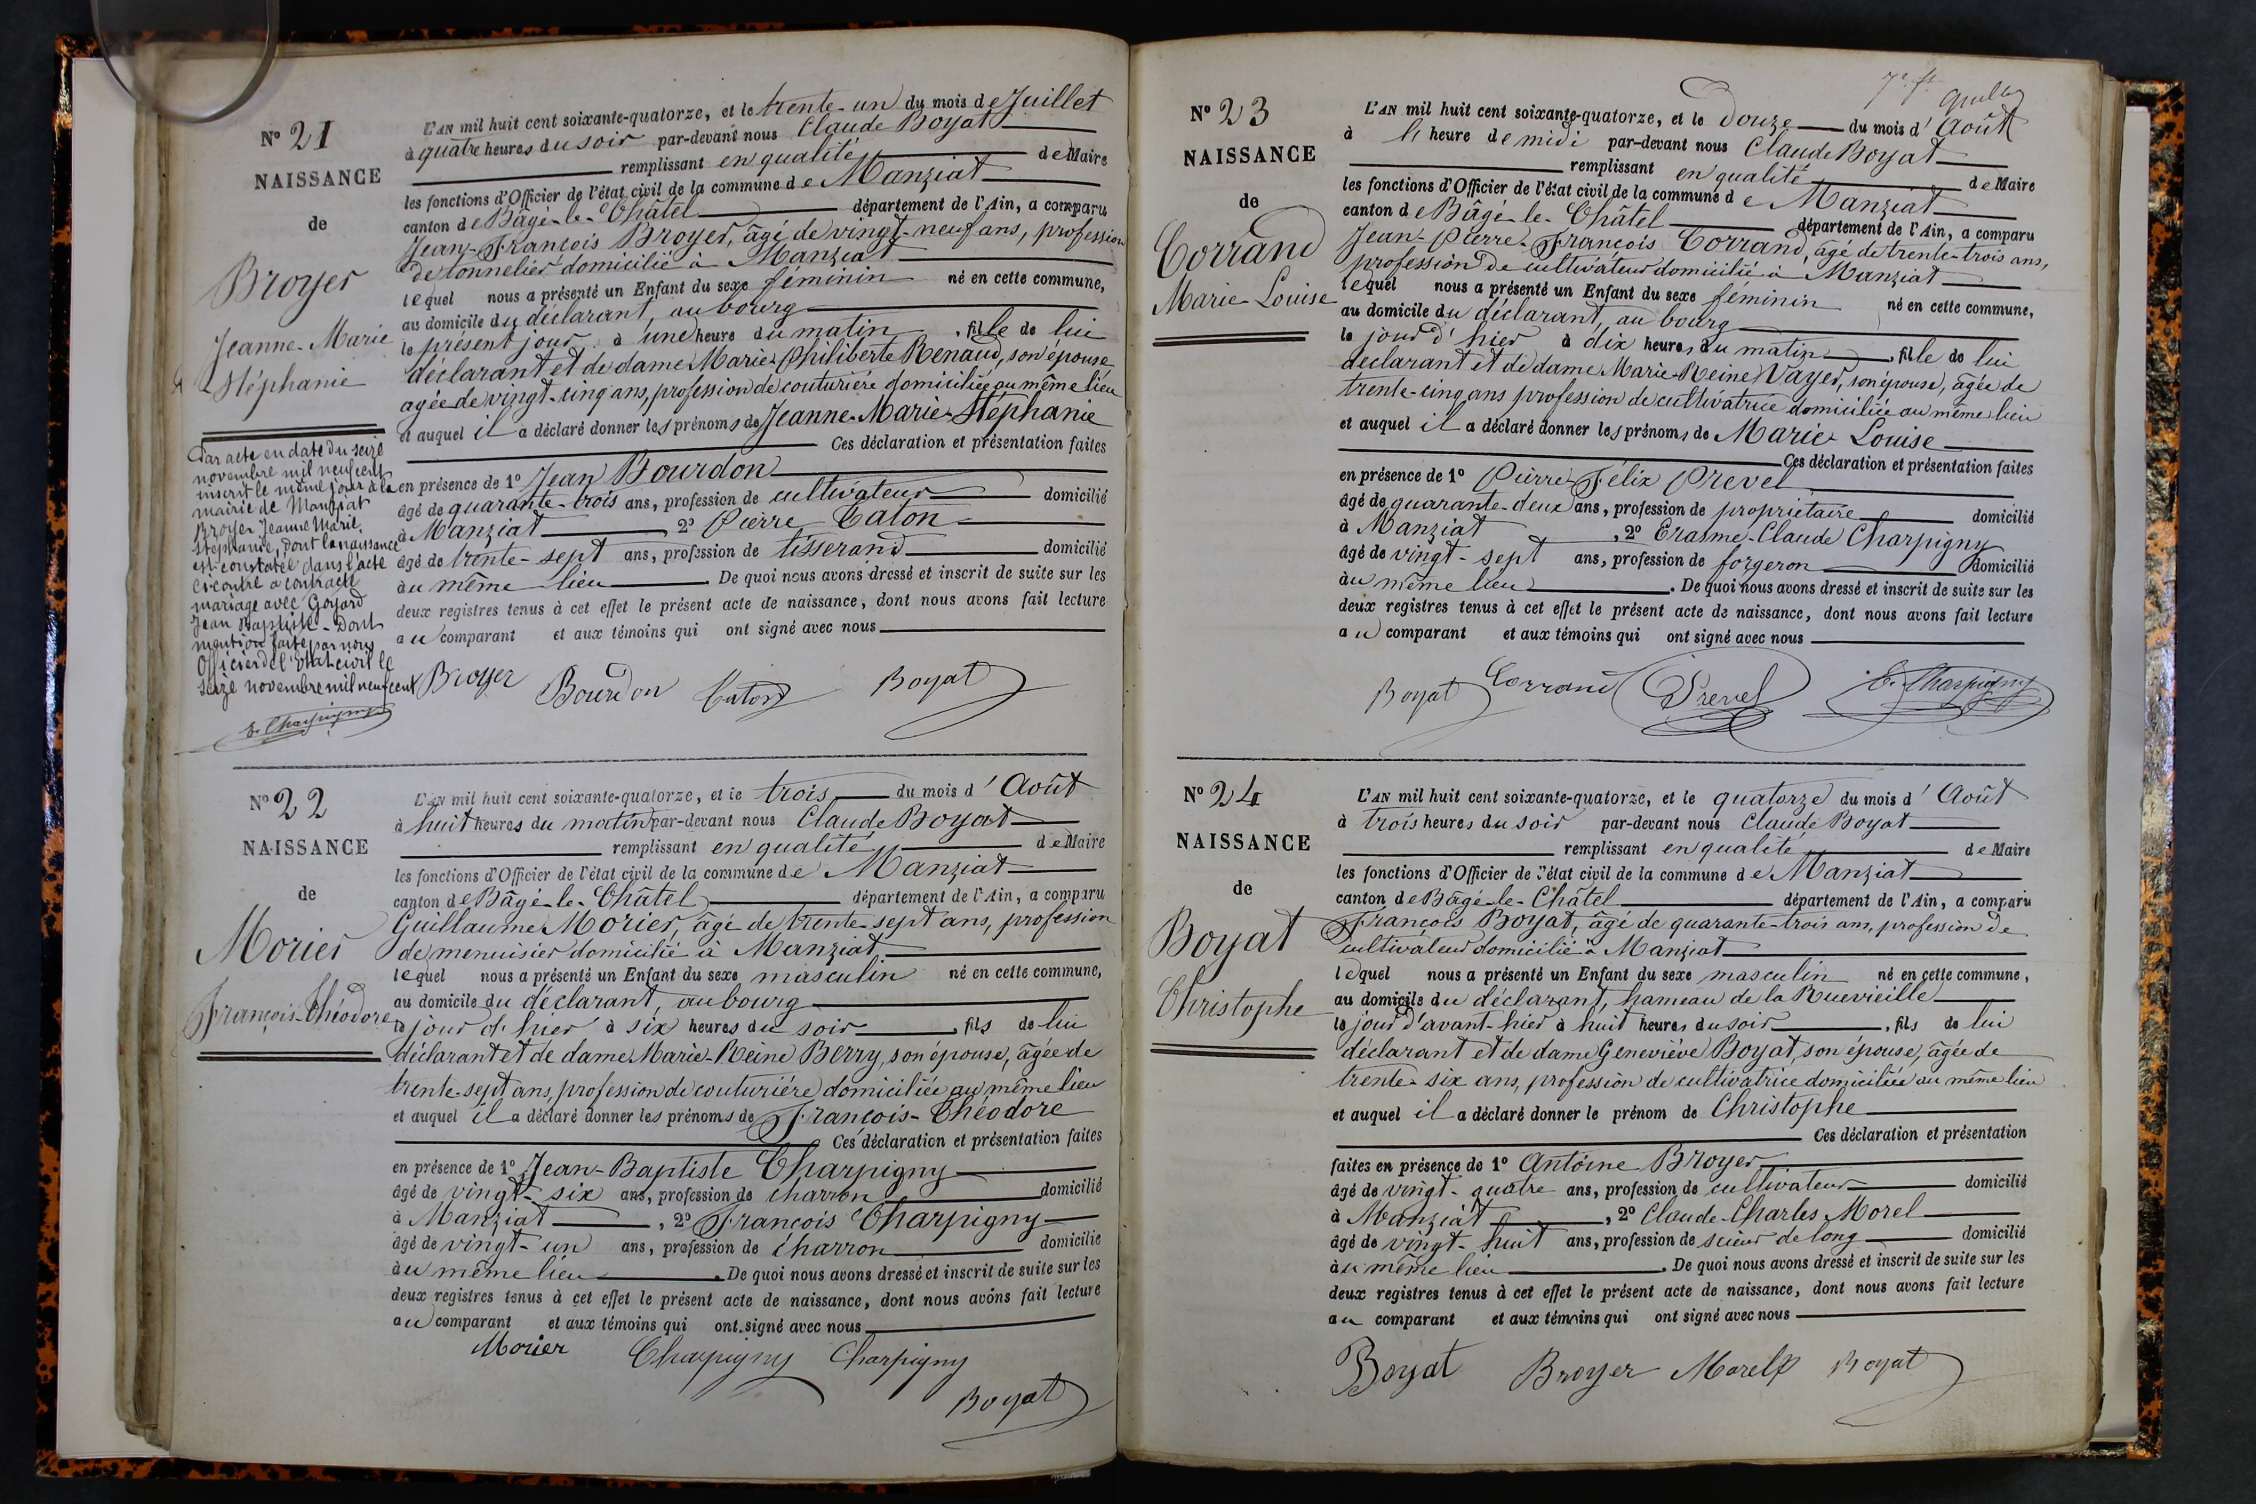 N° 21
NAISSANCE
de
Broyer
Jeanne-Marie
Stéphanie
Par acte en date du seize
novembre mil neuf cent
inscrit le même jour à la
mairie de Manziat
Broyer Jeanne Marie
Stéphanie, dont la naissance
est constatée dans l'acte
ci-contre a contracté
mariage avec Goyard
Jean Baptiste - Dont
mention faite par nous
Officier de l'Etat civil le
seize novembre mil neuf cent
E. Charpigny
L'AN mil huit cent soixante-quatorze, et le trente-un du mois de Juillet
à quatre heures du soir par-devant nous Claude Boyat
remplissant en qualité de Maire
les fonctions d'Officier de l'état civil de la commune de Manziat
canton de Bâgé-le-Châtel département de l'Ain, a comparu
Jean-François Broyer, âgé de vingt-neuf ans, profession
de tonnelier domicilié à Manziat
lequel nous a présenté un Enfant du sexe féminin né en cette commune,
au domicile du déclarant, au bourg
le présent jour à une heure du matin, fille de lui
déclarant et de dame Marie-Philiberte Renaud, son épouse,
agée de vingt-cinq ans, profession de couturière domiciliée au même lieu
et auquel il a déclaré donner les prénoms de Jeanne-Marie-Stéphanie
Ces déclaration et présentation faites
en présence de 1° Jean Bourdon
âgé de quarante-trois ans, profession de cultivateur domicilié
à Manziat 2° Pierre Caton
âgé de trente-sept ans, profession de tisserand domicilié
au même lieu. De quoi nous avons dressé et inscrit de suite sur les
deux registres tenus à cet effet le présent acte de naissance, dont nous avons fait lecture
au comparant et aux témoins qui ont signé avec nous
Broyer Bourdon Caton Boyat
N° 22
NAISSANCE
de
Morier
François-Théodore
L'AN mil huit cent soixante-quatorze, et le trois du mois d'Août
à huit heures du matin par-devant nous Claude Boyat
remplissant en qualité de Maire
les fonctions d'Officier de l'état civil de la commune de Manziat
canton de Bâgé-le-Châtel département de l'Ain, a comparu
Guillaume Morier, âgé de trente-sept ans, profession
de menuisier domicilié à Manziat
lequel nous a présenté un Enfant du sexe masculin né en cette commune,
au domicile du déclarant, au bourg
le jour d'hier à six heures du soir, fils de lui
déclarant et de dame Marie-Reine Berry, son épouse, âgée de
trente-sept ans, profession de couturière domiciliée au même lieu
et auquel il a déclaré donner les prénoms de François-Théodore
Ces déclaration et présentation faites
en présence de 1° Jean-Baptiste Charpigny
âgé de vingt-six ans, profession de charron domicilié
à Manziat, 2° François Charpigny
âgé de vingt-un ans, profession de charron domicilié
au même lieu. De quoi nous avons dressé et inscrit de suite sur les
deux registres tenus à cet effet le présent acte de naissance, dont nous avons fait lecture
au comparant et aux témoins qui ont signé avec nous
Morier Charpigny Charpigny
Boyat
N° 23
NAISSANCE
de
Corrand
Marie-Louise
L'AN mil huit cent soixante-quatorze, et le Douze du mois d'Août
à l' heure de midi par-devant nous Claude Boyat
remplissant en qualité de Maire
les fonctions d'Officier de l'état civil de la commune de Manziat
canton de Bâgé-le-Châtel département de l'Ain, a comparu
Jean-Pierre-François Corrand, âgé de trente-trois ans,
profession de cultivateur domicilié à Manziat
lequel nous a présenté un Enfant du sexe féminin né en cette commune,
au domicile du déclarant, au bourg
le jour d'hier à dix heures du matin, fille de lui
déclarant et de dame Marie-Reine Vayer, son épouse, âgée de
trente-cinq ans profession de cultivatrice domiciliée au même lieu
et auquel il a déclaré donner les prénoms de Marie-Louise
Ces déclaration et présentation faites
en présence de 1° Pierre-Félix Prevel
âgé de quarante-deux ans, profession de propriétaire domicilié
à Manziat, 2° Erasme-Claude Charpigny
âgé de vingt-sept ans, profession de forgeron domicilié
au même lieu. De quoi nous avons dressé et inscrit de suite sur les
deux registres tenus à cet effet le présent acte de naissance, dont nous avons fait lecture
au comparant et aux témoins qui ont signé avec nous
Boyat Corrand Prevel E. Charpigny
N° 24
NAISSANCE
de
Boyat
Christophe
L'AN mil huit cent soixante-quatorze, et le quatorze du mois d'Août
à trois heures du soir par-devant nous Claude Boyat
remplissant en qualité de Maire
les fonctions d'Officier de l'état civil de la commune de Manziat
canton de Bâgé-le-Châtel département de l'Ain, a comparu
François Boyat, âgé de quarante-trois ans, profession de
cultivateur domicilié à Manziat
lequel nous a présenté un Enfant du sexe masculin né en cette commune,
au domicile du déclarant, hameau de la Ruevieille
le jour d'avant-hier à huit heures du soir, fils de lui
déclarant et de dame Geneviève Boyat, son épouse, âgée de
trente-six ans, profession de cultivatrice domiciliée au même lieu
et auquel il a déclaré donner le prénom de Christophe
Ces déclaration et présentation
faites en présence de 1° Antoine Broyer
âgé de vingt-quatre ans, profession de cultivateur domicilié
à Manziat, 2° Claude-Charles Morel
âgé de vingt-huit ans, profession de scieur de long domicilié
au même lieu. De quoi nous avons dressé et inscrit de suite sur les
deux registres tenus à cet effet le présent acte de naissance, dont nous avons fait lecture
au comparant et aux témoins qui ont signé avec nous
Boyat Broyer Morel Boyat